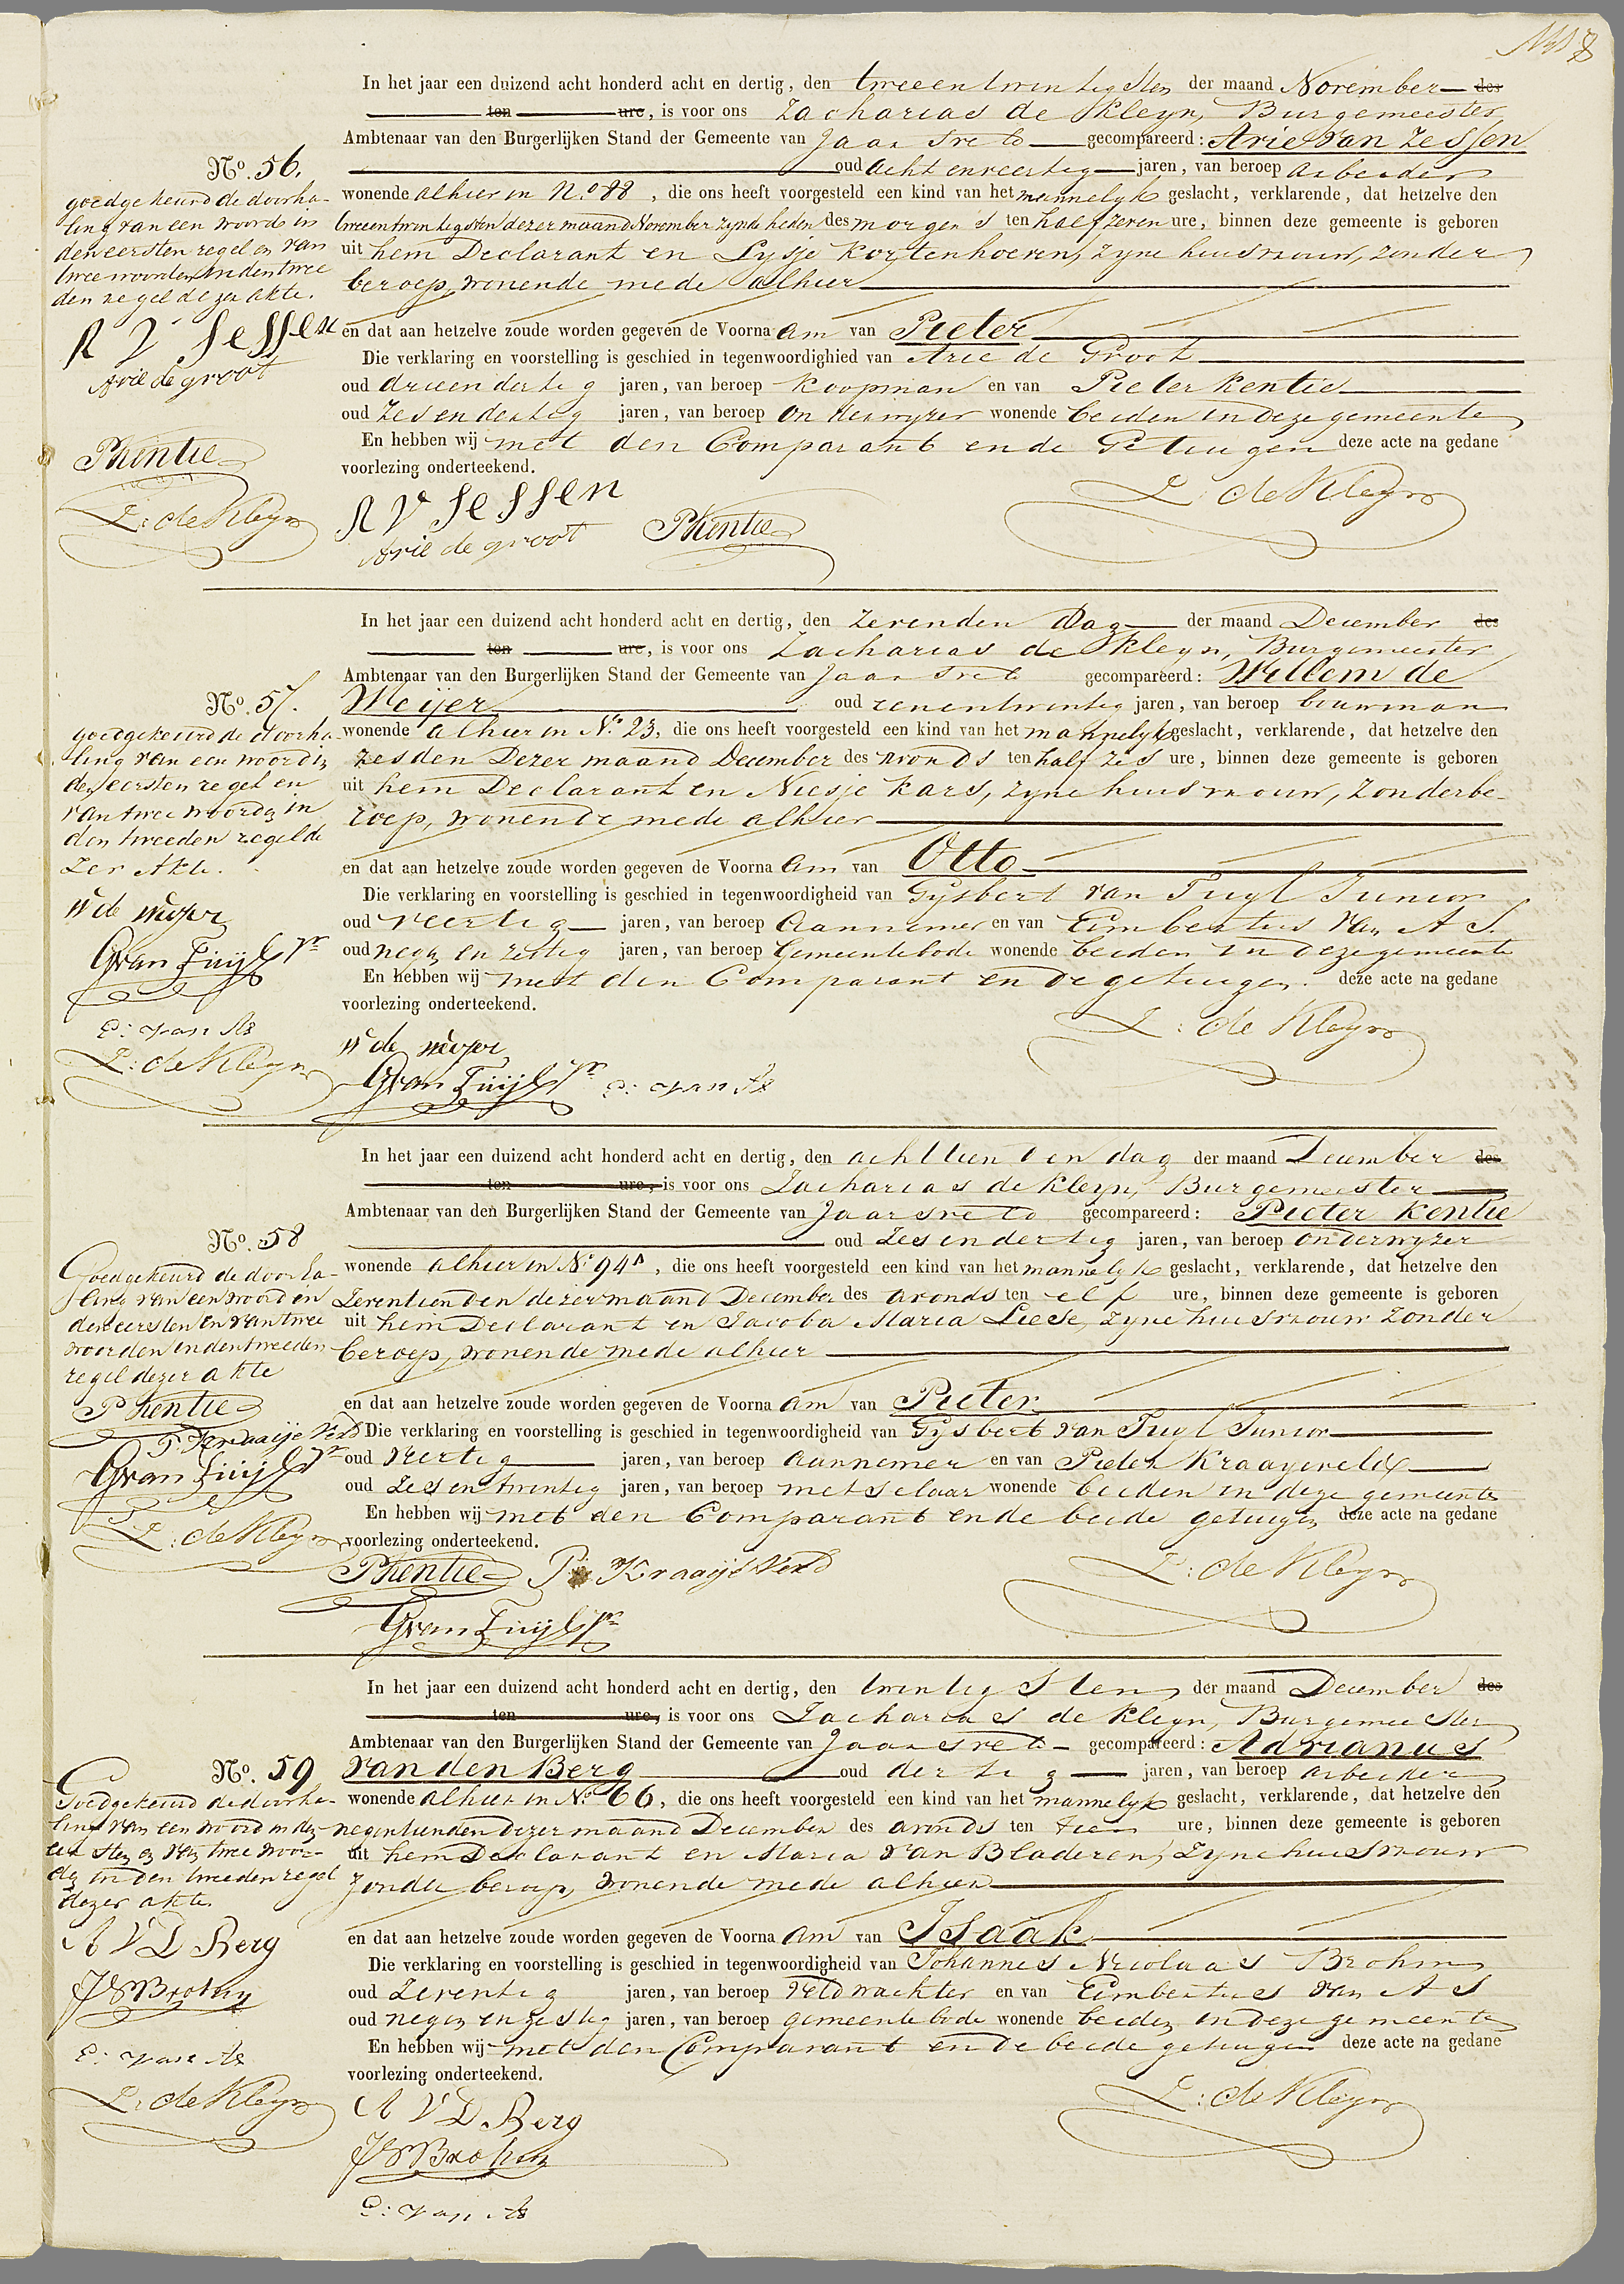 In het jaar een duizend acht honderd acht en dertig, den tweeentwintigsten der maand November des
ten ure, is voor ons Zacharias de Kleyn, Burgemeester
Ambtenaar van den Burgerlijken Stand der Gemeente van Jaarsveld gecompareerd: Arie van Zessen
oud acht en veertig jaren, van beroep arbeider
No. 56.
wonende alhier in No. 88, die ons heeft voorgesteld een kind van het mannelyk geslacht, verklarende, dat hetzelve den
tweeentwintigsten dezer maand November zynde heden des morgens ten half zeven ure, binnen deze gemeente is geboren
uit hem Declarant en Lysje Kortenhoeven, zyne huisvrouw, zonder
beroep, wonende mede alhier
goedgekeurd de doorha-
ling van een woord in
den eersten regel en van
twee woorden in den twee
den regel dezer akte.
A V Sessen
Arie de groot
PKentie
Z: de Kleyn
en dat aan hetzelve zoude worden gegeven de Voorna am van Pieter
Die verklaring en voorstelling is geschied in tegenwoordighied van Arie de Groot
oud drieendertig jaren, van beroep Koopman en van Pieter Kentie
oud zesendertig jaren, van beroep onderwyzer wonende beiden in deze gemeente
En hebben wij met den Comparant en de Getuigen deze acte na gedane
voorlezing onderteekend.
A V Sessen
Arie de groot
PKentie
Z: de Kleyn
In het jaar een duizend acht honderd acht en dertig, den zevenden dag der maand December des
ten ure, is voor ons Zacharias de Kleyn, Burgemeester
Ambtenaar van den Burgerlijken Stand der Gemeente van Jaarsveld gecompareerd: Willem de
No. 57.
Meijer oud zevenentwintig jaren, van beroep bouwman
wonende alhier in No. 23, die ons heeft voorgesteld een kind van het mannelyk geslacht, verklarende, dat hetzelve den
zesden Dezer maand December des avonds ten half zes ure, binnen deze gemeente is geboren
uit hem Declarant en Niesje Kars, zyne huisvrouw, zonder be-
roep, wonende mede alhier
goedgekeurd de doorha-
ling van een woord in
den eersten regel en
van twee woorden in
den tweeden regel de
zer Akte.
W de meijer
GvanTuijl Jr
E: van As
Z: de Kleyn
en dat aan hetzelve zoude worden gegeven de Voorna am van Otto
Die verklaring en voorstelling is geschied in tegenwoordigheid van Gysbert van Tuyl Junior
oud veertig jaren, van beroep Aannemer en van Eimbertus van As.
oud negen en zestig jaren, van beroep Gemeentebode wonende beiden in deze gemeente
En hebben wij met den Comparant en de getuigen. deze acte na gedane
voorlezing onderteekend.
W de meijer
GvanTuijl Jr
E: van As
Z: de Kleyn
In het jaar een duizend acht honderd acht en dertig, den achttienden dag der maand December des
ten ure, is voor ons Zacharias de Kleyn, Burgemeester
Ambtenaar van den Burgerlijken Stand der Gemeente van Jaarsveld gecompareerd: Pieter Kentie
No. 58
oud zesendertig jaren, van beroep onderwyzer
wonende alhier in No. 94A, die ons heeft voorgesteld een kind van het mannelyk geslacht, verklarende, dat hetzelve den
zeventienden dezer maand December des avonds ten elf ure, binnen deze gemeente is geboren
uit hem Declarant en Jacoba Maria Liese, zyne huisvrouw zonder
beroep, wonende mede alhier
Goedgekeurd de doorha-
ling van een woord in
den eersten en van twee
woorden in den tweeden
regel dezer akte
PKentie
P: KraaijeVeld
GvanTuijl Jr
Z: de Kleyn
en dat aan hetzelve zoude worden gegeven de Voorna am van Pieter
Die verklaring en voorstelling is geschied in tegenwoordigheid van Gysbert van Tuyl Junior
oud veertig jaren, van beroep Aannemer en van Pieter Kraayeveld
oud zesentwintig jaren, van beroep metselaar wonende beiden in deze gemeente
En hebben wij met den Comparant en de beide getuigen deze acte na gedane
voorlezing onderteekend.
PKentie P: KraaijeVeld
GvanTuijl Jr
Z: de Kleyn
In het jaar een duizend acht honderd acht en dertig, den twintigsten der maand December des
ten ure, is voor ons Zacharias de Kleyn, Burgemeester
Ambtenaar van den Burgerlijken Stand der Gemeente van Jaarsveld gecompareerd: Adrianus
No. 59
van den Berg oud dertig jaren, van beroep arbeider
wonende alhier in No. 66, die ons heeft voorgesteld een kind van het mannelyk geslacht, verklarende, dat hetzelve den
negentienden dezer maand December des avonds ten tien ure, binnen deze gemeente is geboren
uit hem Declarant en Maria van Bladeren, Zyne huisvrouw
zonder beroep, wonende mede alhier
Goedgekeurd de doorha-
ling van een woord in den
eersten en van twee woor-
den in den tweeden regel
dezer akte.
A V D Berg
JNBrohm
E: van As
Z: de Kleyn
en dat aan hetzelve zoude worden gegeven de Voorna am van Isaak
Die verklaring en voorstelling is geschied in tegenwoordigheid van Johannes Nicolaas Brohm
oud Zeventig jaren, van beroep Veldwachter en van Eimbertus van As
oud negen en zestig jaren, van beroep gemeentebode wonende beiden in deze gemeente
En hebben wij met den Comparant en de beide getuigen deze acte na gedane
voorlezing onderteekend.
A V D Berg
JNBrohm
E: van As
Z: de Kleyn